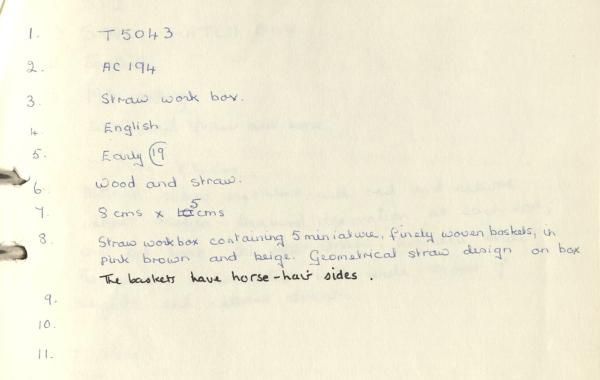 1. T5043
2. AC 194
3. Straw work box.
4. English
5. Early 19
6. Wood and straw.
7. 8 cms x 5 cms
8. Straw workbox containing 5 miniature, finely woven baskets, in
pink brown and beige. Geometrical straw design on box
The baskets have horse-hair sides.
9.
10.
11.